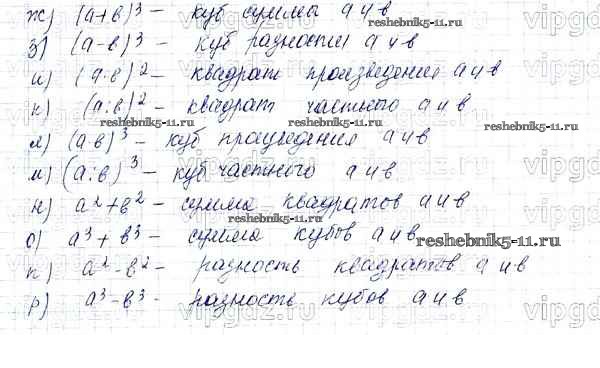 ж) (a+в)³ – куб суммы a и в
з) (a-в)³ – куб разности a и в
и) (a·в)² – квадрат произведения a и в
к) (a:в)² – квадрат частного a и в
л) (aв)³ – куб произведения a и в
м) (a:в)³ – куб частного a и в
н) a²+в² – сумма квадратов a и в
о) a³+в³ – сумма кубов a и в
п) a²-в² – разность квадратов a и в
р) a³-в³ – разность кубов a и в
reshebnik5-11.ru
reshebnik5-11.ru
reshebnik5-11.ru
reshebnik5-11.ru
reshebnik5-11.ru
reshebnik5-11.ru
vipgdz.ru